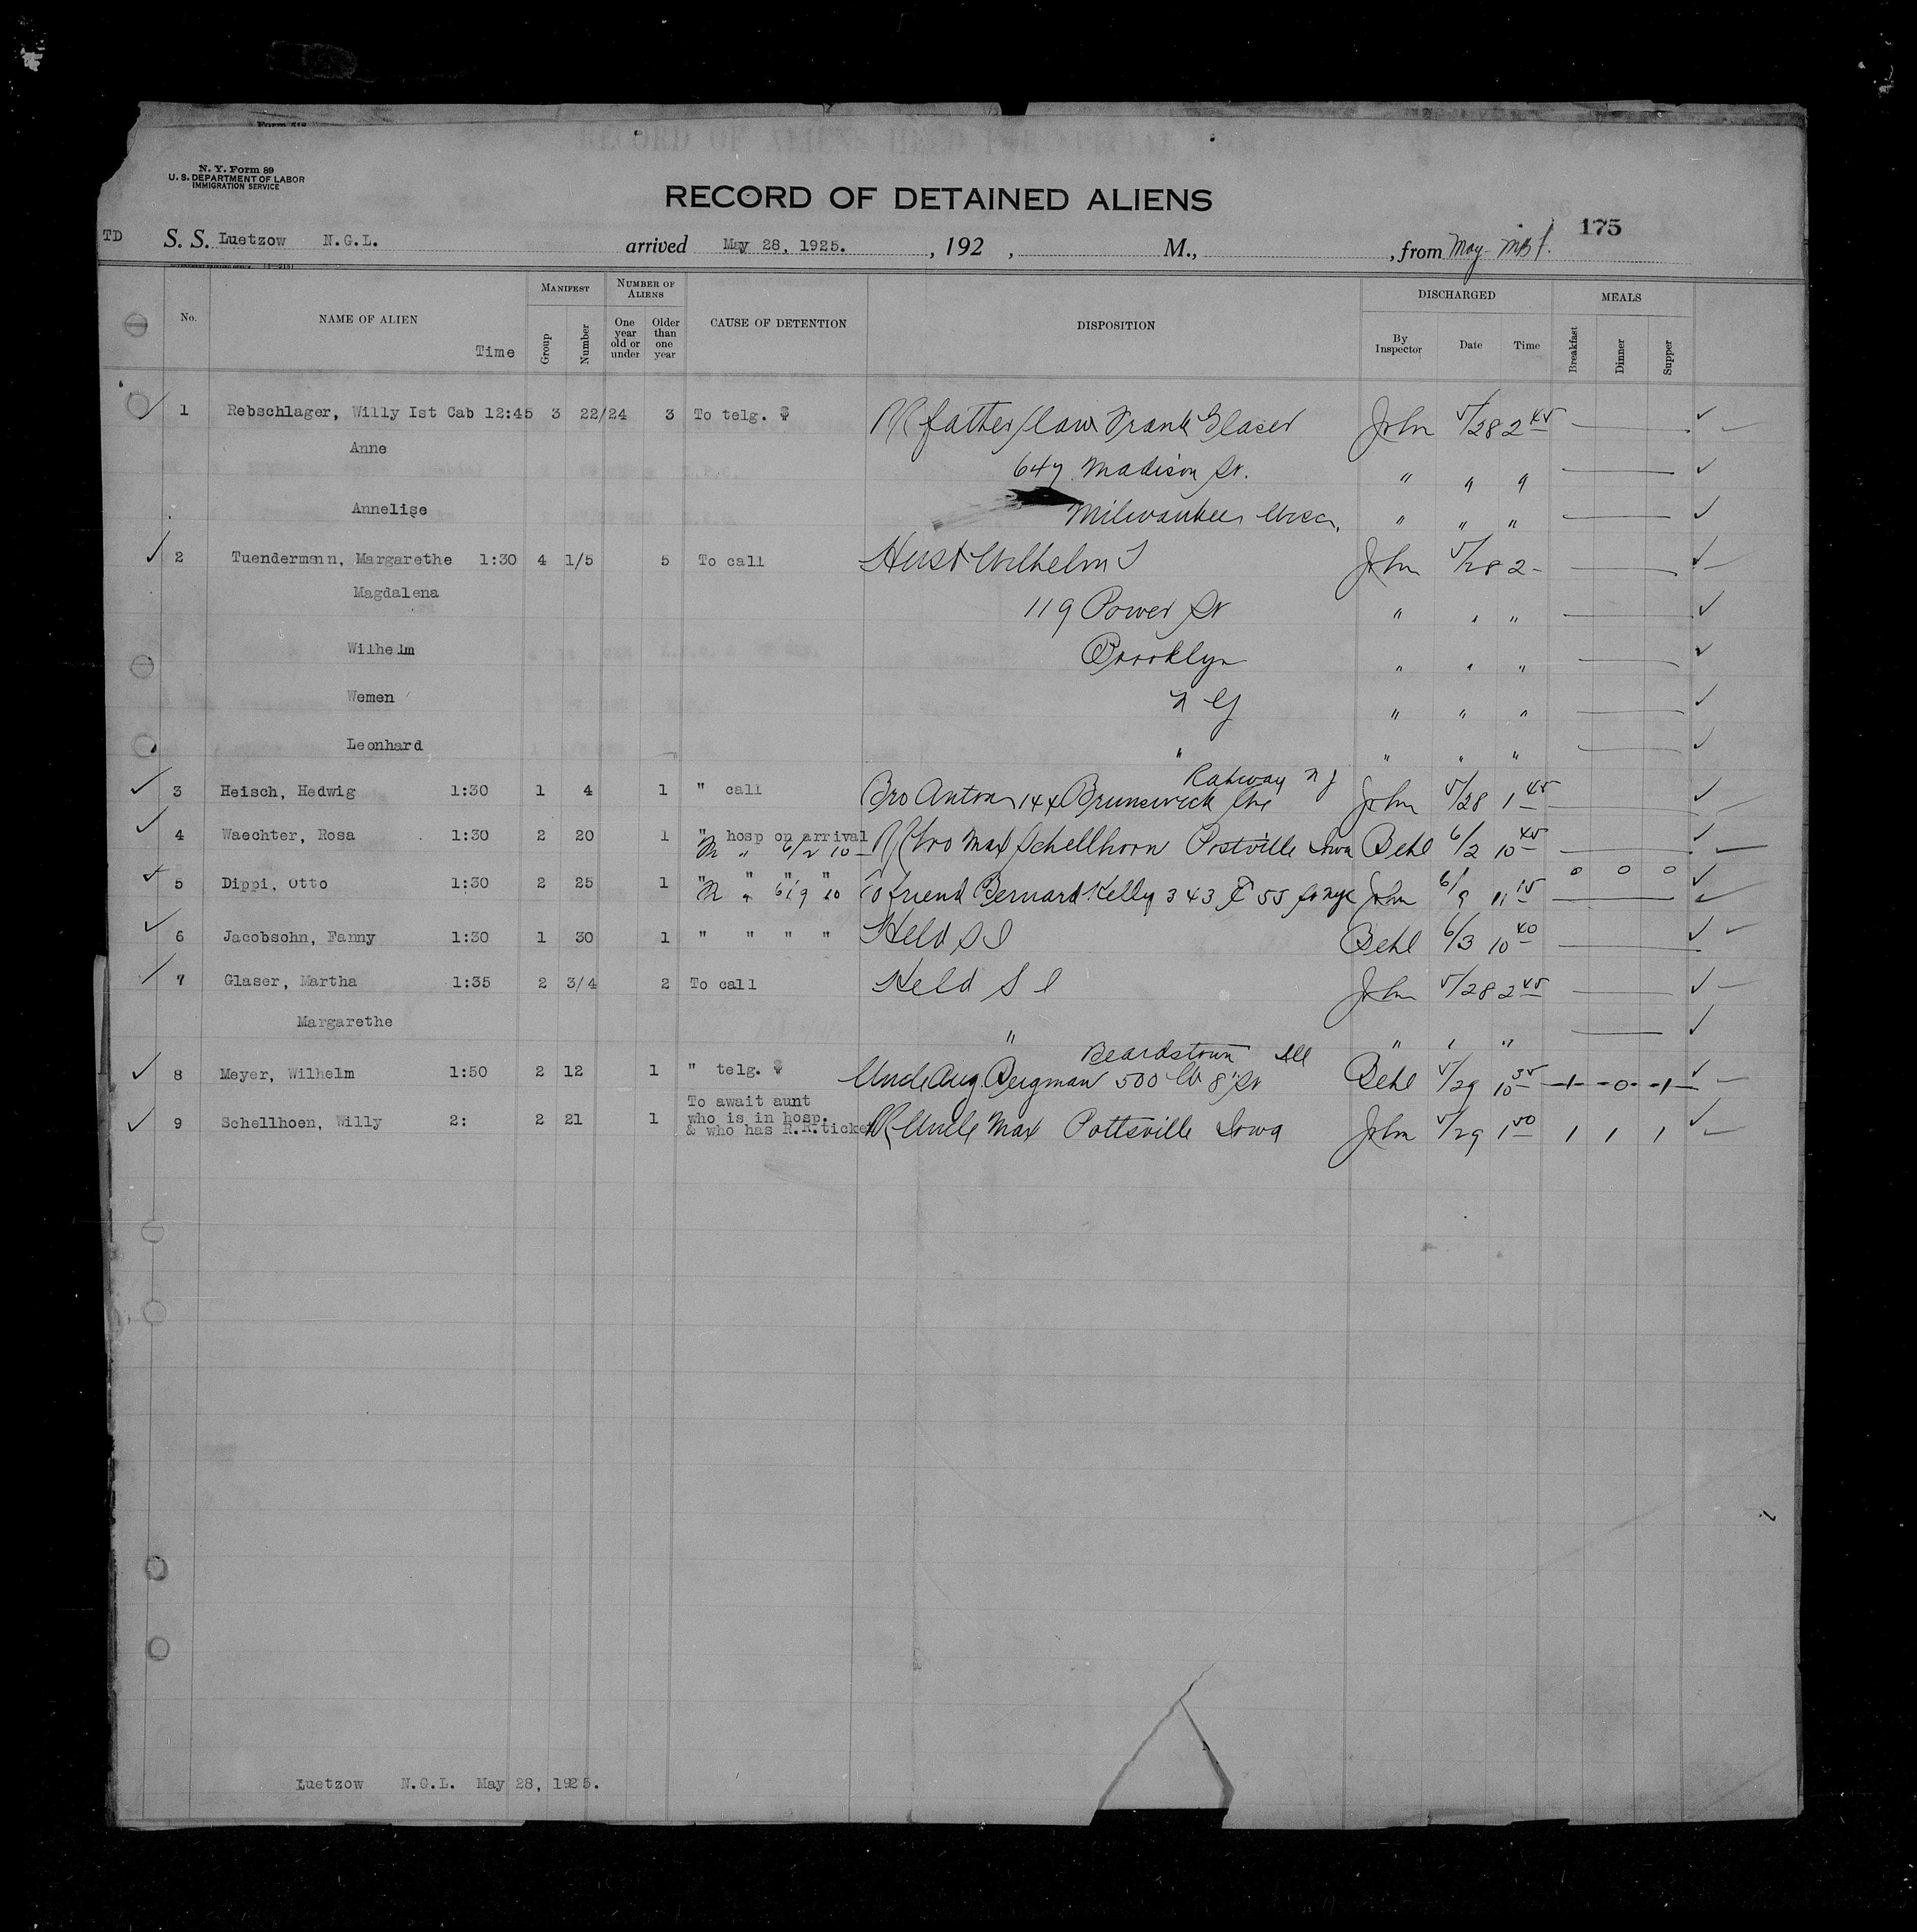 N. Y. Form 89
U. S. DEPARTMENT OF LABOR
IMMIGRATION SERVICE
RECORD OF DETAINED ALIENS
175
TD S. S. Luetzow N.G.L. arrived May 28, 1925. , 192 , M., , from May
No. NAME OF ALIEN Time MANIFEST Group Number NUMBER OF ALIENS One year old or under Older than one year CAUSE OF DETENTION DISPOSITION DISCHARGED By Inspector Date Time MEALS Breakfast Dinner Supper
1 Rebschlager, Willy Ist Cab 12:45 3 22/24 3 To telg. $ father/law Frank Glaser John 5/28 2 45
Anne 647 Madison St. " " "
Annelise Milwaukee Wisc. " " "
2 Tuendermann, Margarethe 1:30 4 1/5 5 To call Husb Wilhelm T John 5/28 2-
Magdalena 119 Power St " " "
Wilhelm Brooklyn " " "
Wemen N Y " " "
Leonhard " " " "
Rahway N J
3 Heisch, Hedwig 1:30 1 4 1 " call Bro Anton 144 Brunswick Ave John 5/28 1 45
4 Waechter, Rosa 1:30 2 20 1 " hosp on arrival RR bro Max Schellhorn Postville Iowa Behl 6/2 10 45
" 6/2 10
5 Dippi, Otto 1:30 2 25 1 " " " " To friend Bernard Kelly 343 E 55 St NYC John 6/9 11 15 0 0 0
" 6/9 10
6 Jacobsohn, Fanny 1:30 1 30 1 " " " " Held S I Behl 6/3 10 40
7 Glaser, Martha 1:35 2 3/4 2 To call Held S I John 5/28 2 45
Margarethe " " " "
Beardstown Ill
8 Meyer, Wilhelm 1:50 2 12 1 " telg. $ Uncle Aug. Bergman 500 W 8" St Behl 5/29 10 35 1 0 1
To await aunt
9 Schellhoen, Willy 2: 2 21 1 who is in hosp. RR Uncle Max Pottsville Iowa John 5/29 1 50 1 1 1
& who has R.R.ticket
Luetzow N.G.L. May 28, 1925.